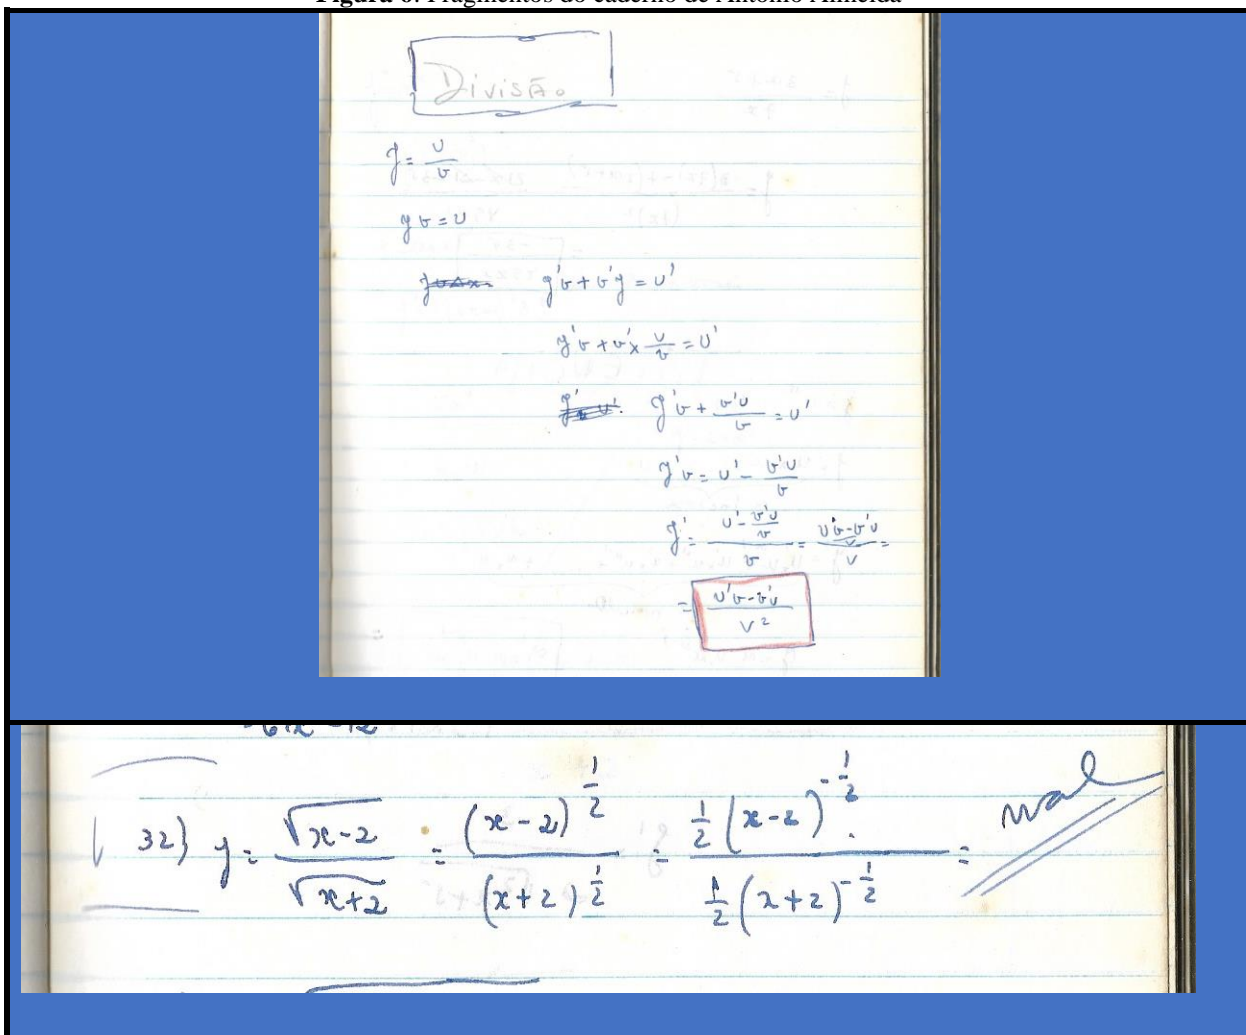 Figura 6: Fragmentos do caderno de António Almeida
Divisão
y = u/v
yv = u
y'v + v'y = u'
y'v + v' x u/v = u'
y'v + v'u/v = u'
y'v = u' - v'u/v
y' = (u' - v'u/v)/v = ((u'v - v'u)/v)/v =
= (u'v - v'u)/v²
32) y = √(x-2)/√(x+2) = (x-2)^(1/2)/(x+2)^(1/2) = 1/2(x-2)^(-1/2)/1/2(x+2)^(-1/2) = mal